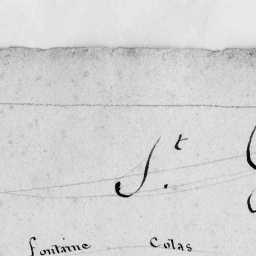 S.t
fontaine Colas